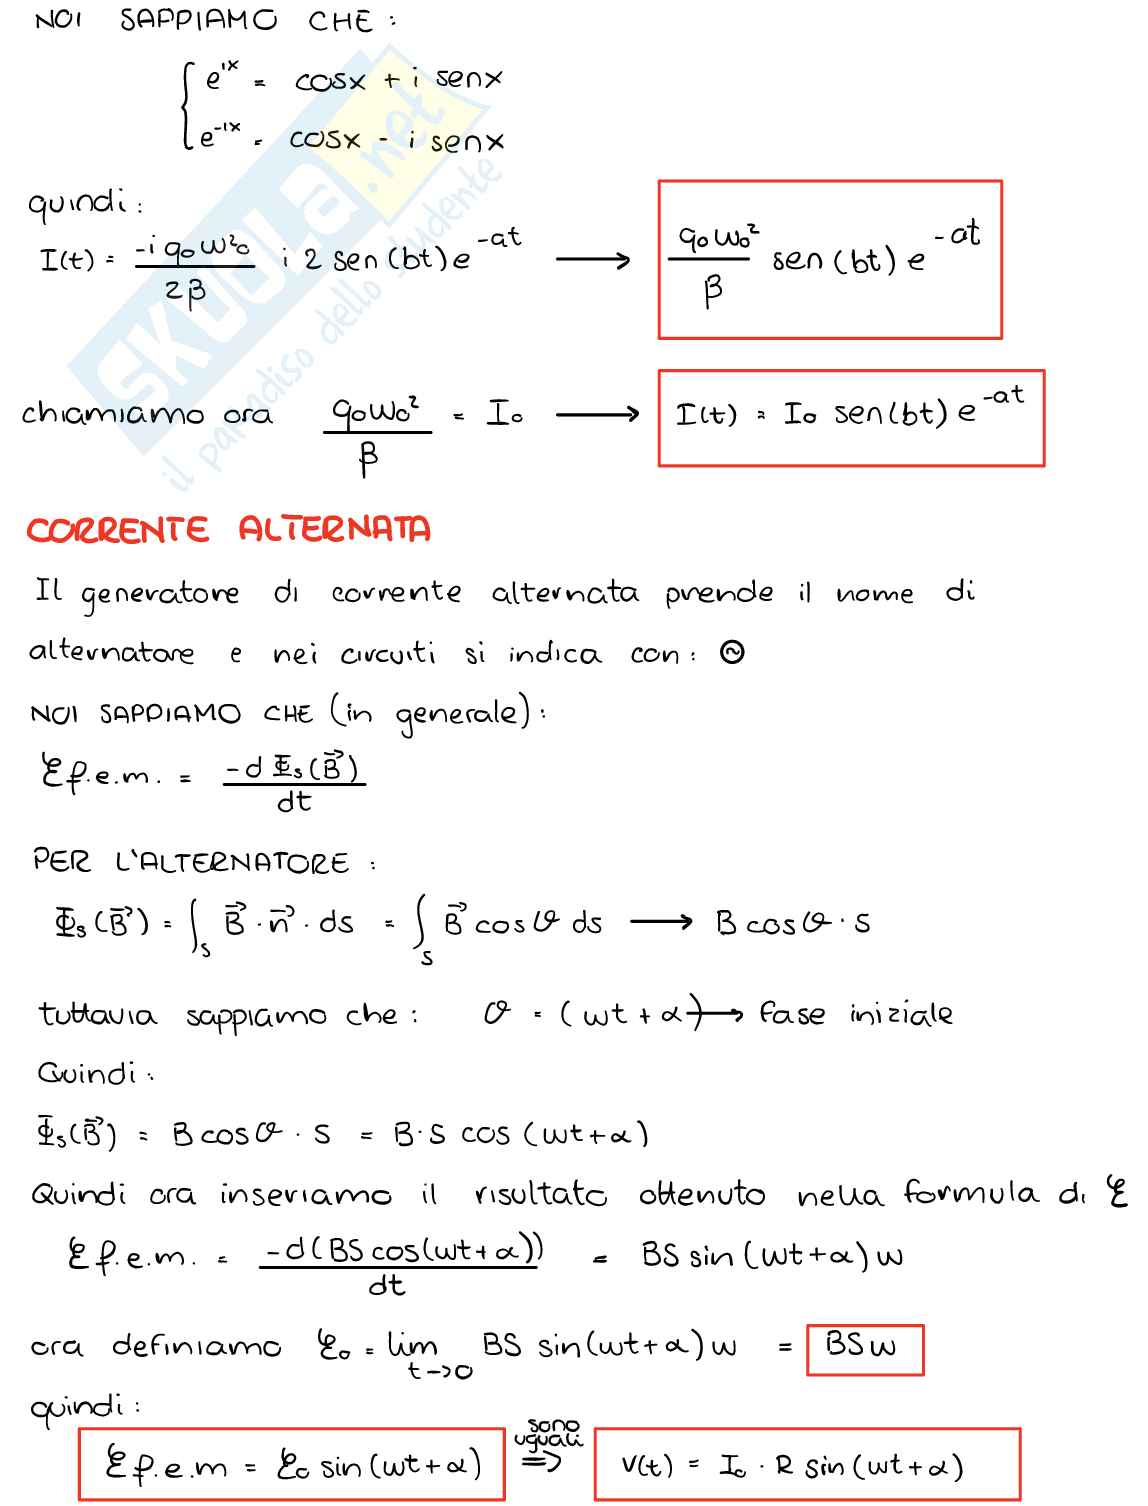 NOI SAPPIAMO CHE :
e^ix = cosx + i senx
e^-ix = cosx - i senx
quindi :
I(t) = -i q₀ω²₀ / 2β i 2 sen(bt) e^-at ⟶ q₀ω₀² / β sen(bt) e^-at
chiamiamo ora q₀ω₀² / β = I₀ ⟶ I(t) = I₀ sen(bt) e^-at
CORRENTE ALTERNATA
Il generatore di corrente alternata prende il nome di
alternatore e nei circuiti si indica con :
NOI SAPPIAMO CHE (in generale) :
ℰ f.e.m. = -d Φₛ(B⃗) / dt
PER L'ALTERNATORE :
Φₛ(B⃗) = ∫ₛ B⃗ · n⃗ · ds = ∫ₛ B⃗ cosϑ ds ⟶ B cosϑ · S
tuttavia sappiamo che : ϑ = (ωt + α) ⟶ fase iniziale
Quindi :
Φₛ(B⃗) = B cosϑ · S = B·S cos (ωt+α)
Quindi ora inseriamo il risultato ottenuto nella formula di ℰ
ℰ f.e.m. = -d(BS cos(ωt+α)) / dt = BS sin(ωt+α)ω
ora definiamo ℰ₀ = lim t→0 BS sin(ωt+α)ω = BSω
quindi :
ℰ f.e.m = ℰ₀ sin(ωt+α) sono uguali ⟹ V(t) = I₀ · R sin(ωt+α)
SKUOLA.net
il paradiso dello studente